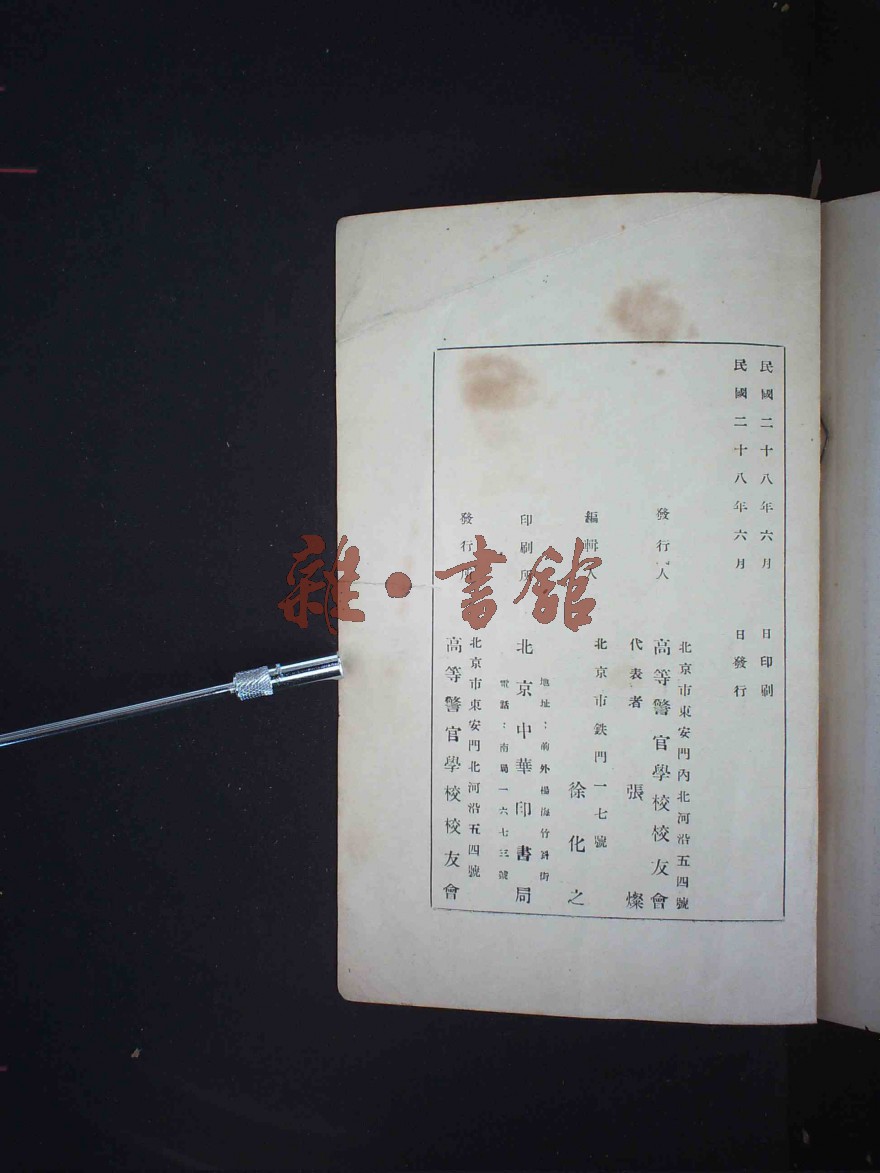 民國二十八年六月　日印刷
民國二十八年六月　日發行
發行人
北京市東安門內北河沿五四號
高等警官學校校友會
代表者　張燦
編輯人
北京市鉄門一七號
徐化之
印刷所
地址：前外楊梅竹斜街
北京中華印書局
電話：南局一六七三號
發行所
北京市東安門北河沿五四號
高等警官學校校友會
雜·書館